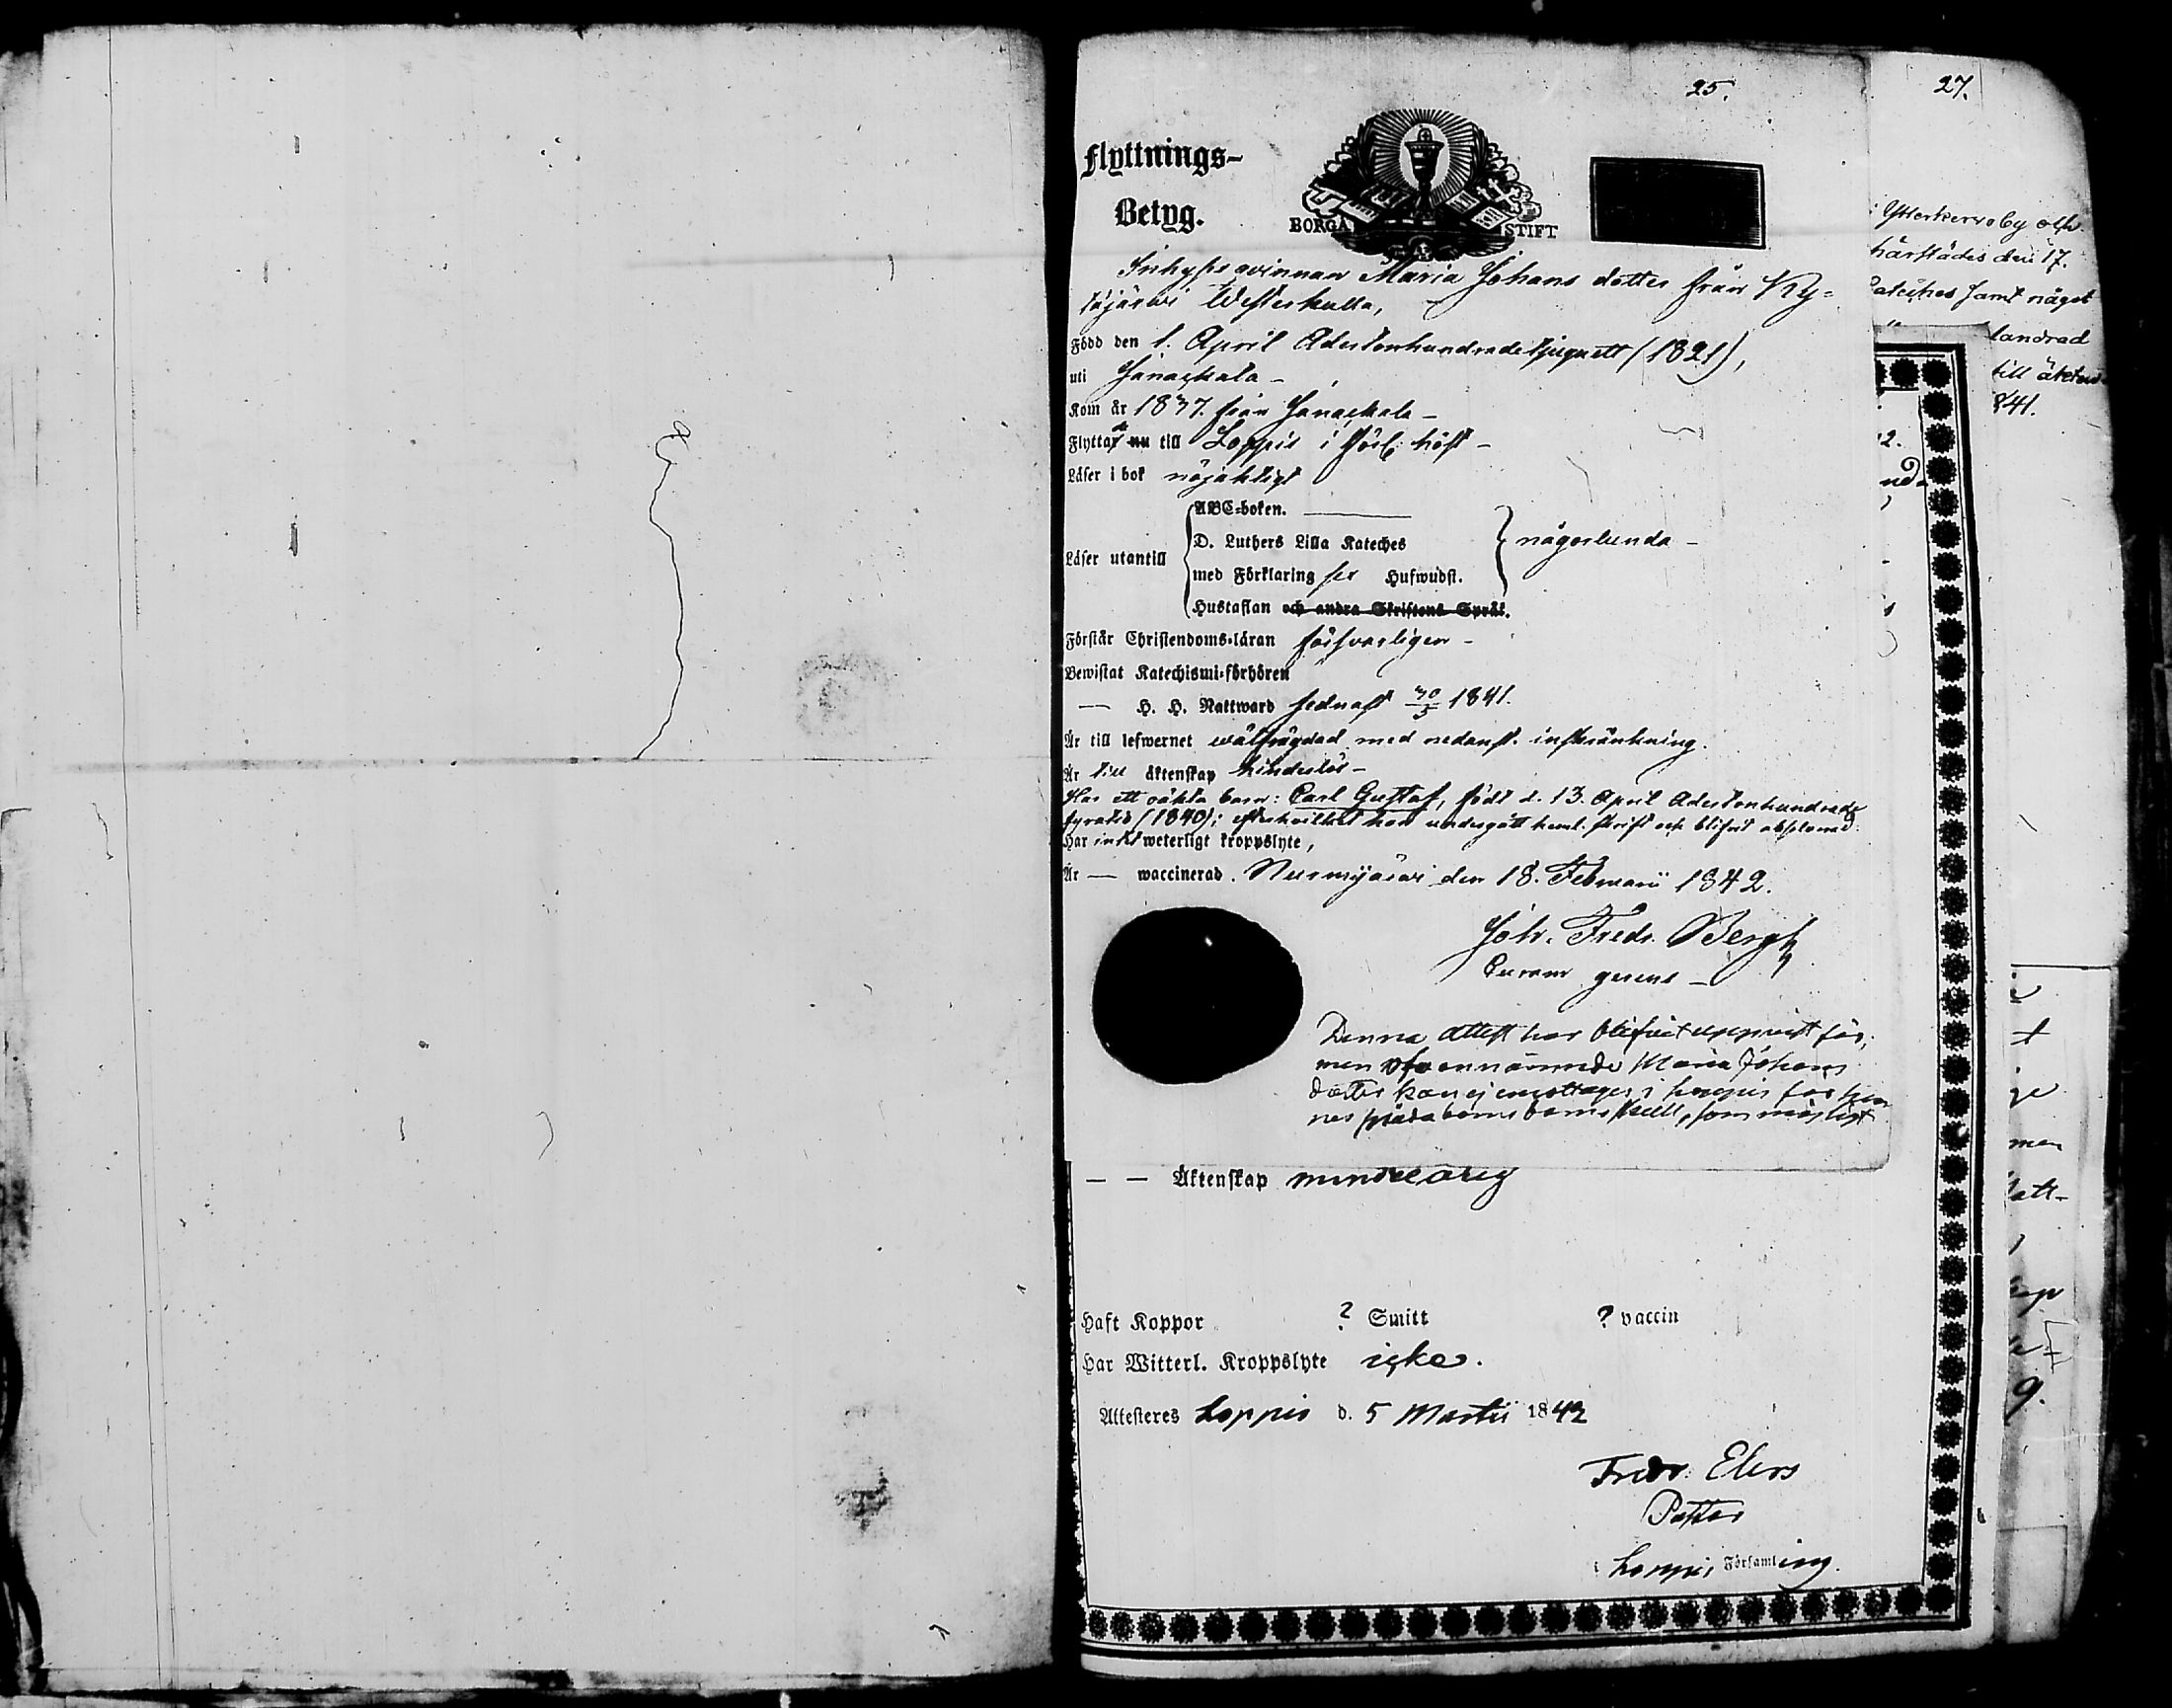 25.
Flyttnings-
Betyg.
BORGÅ STIFT
Inhyses qvinnan Maria Johans dotter från Ky-
töjärvi Westerkulla,
Född den 1. April Adertonhundradetjuguett (1821),
uti Janackala –
Kom år 1837. från Janackala –
Flyttade till Loppis i förl. höst –
Läser i bok nöjaktigt
Läser utantill
ABC-boken.
D. Luthers Lilla Kateches
med Förklaring sex Hufwudst.
Hustaflan och andra Skriftens Språk.
någorlunda –
Förstår Christendoms-läran försvarligen –
Bewistat Katechismi-förhören
— H. H. Nattward sednast 30/5 1841.
Är till lefwernet wälfrägdad med nedanst. inskränkning.
Är till äktenskap hinderlös –
Har ett oäkta barn: Carl Gustaf, födt d. 13. April Adertonhundrade
fyratio (1840); efter hvilket hon undergått heml. skrift och blifvit absolverad.
Har intet weterligt kroppslyte,
Är — waccinerad. Nurmijärvi den 18. Februarii 1842.
Joh. Fredr. Bergh
Curam gerens –
Denna attest har blifvit uppvist för,
men ofvannämnde Maria Johans
dotter kan ej emottagas i Loppis för hen
nes späda barns skull, som möjligt
— — Äktenskap minderårig
Haft Koppor ? Smitt ? vaccin
Har Witterl. Kroppslyte icke.
Attesteres Loppis d. 5 Martii 1842
Fredr. Elers
Pastor
i Loppis Församling.
27.
by och
härstädes den 17.
Cateches samt något
landrad
till äkten-
841.
2.
nd-
t
ge
men
att-
9.